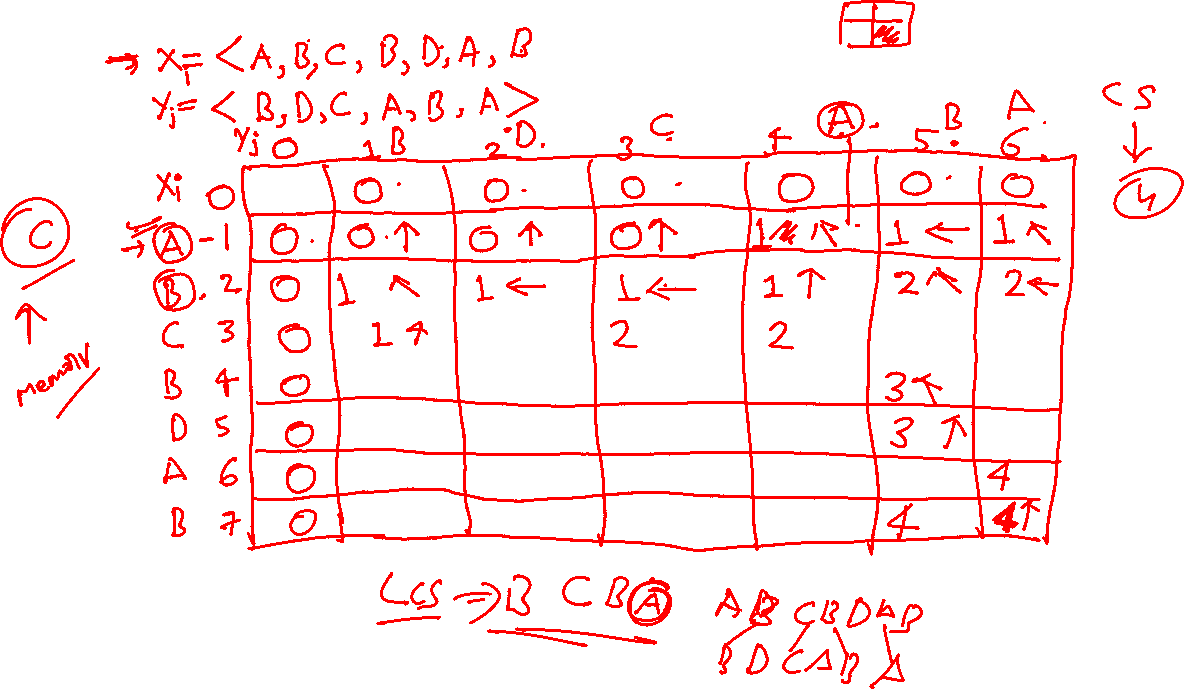 → Xi = < A, B, C, B, D, A, B
Yj = < B, D, C, A, B, A >
CS
↓
4
Yj 0 1 B 2 D. 3 C 4 A. 5 B. 6 A.
Xi 0 0. 0. 0. 0 0. 0
→ A - 1 0. 0. ↑ 0 ↑ 0 ↑ 1 ↖. 1 ← 1 ↖
B. 2 0 1 ↖ 1 ← 1 ← 1 ↑ 2 ↖ 2 ←
C 3 0 1 ↑ 2 2
B 4 0 3 ↖
D 5 0 3 ↑
A 6 0 4
B 7 0 4 4 ↑
C
↑
memory
LCS ⇒ B C B A
A B C B D A B
B D C A B A